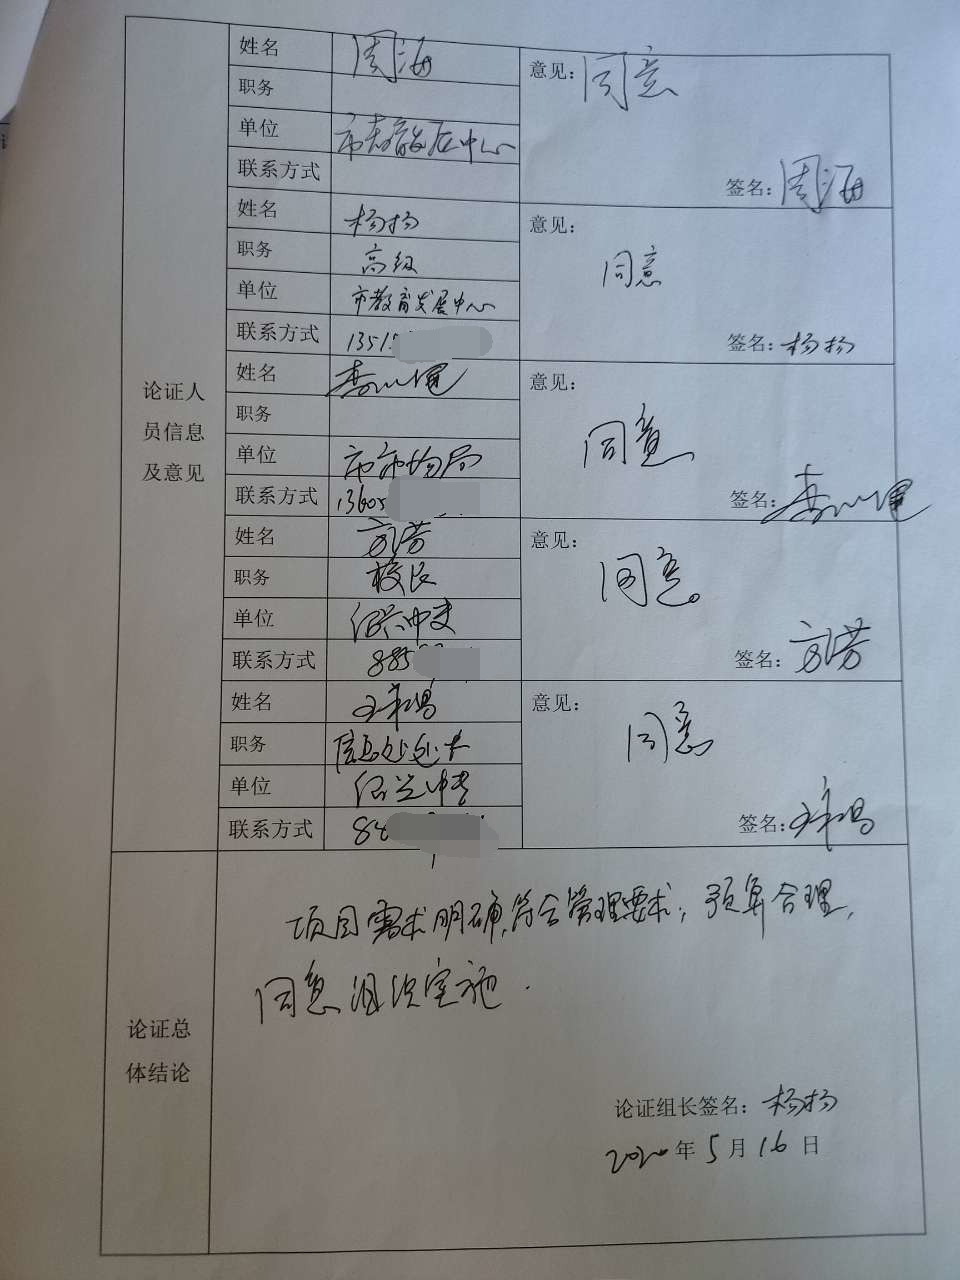 姓名 周海
意见: 同意
职务
单位 市教育发展中心
联系方式
签名: 周海
姓名 杨扬
意见:
职务 高级
同意
单位 市教育发展中心
联系方式 1351
签名: 杨扬
姓名
意见:
职务
同意
单位 市 局
联系方式 13605
签名:
论证人
员信息
及意见
姓名 方芳
意见:
职务 校长
同意。
单位 绍兴中专
联系方式 885
签名: 方芳
姓名
意见:
职务
同意
单位 绍兴中专
联系方式 84
签名:
项目需求明确,符合管理要求;预算合理,
同意组织实施.
论证总
体结论
论证组长签名: 杨扬
2020年5月16日